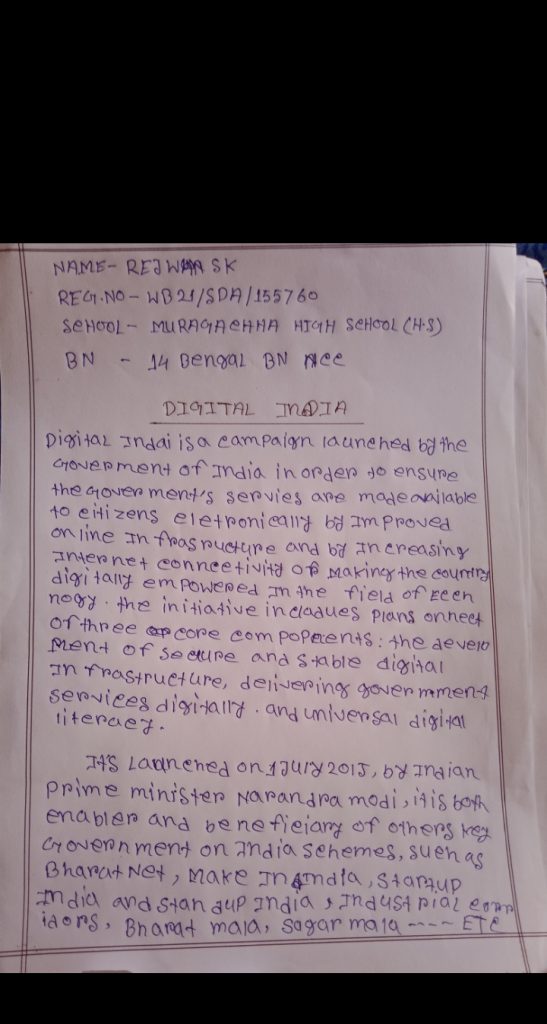 NAME- REJWAN SK
REG.NO- WB21/SDA/155760
SCHOOL- MURAGACHHA HIGH SCHOOL (H.S)
BN - 14 Bengal BN NCC
DIGITAL INDIA
Digital Indai is a campaign launched by the
Goverment of India in order to ensure
the Goverment's servies are made available
to citizens eletronically by Improved
online Infrasructure and by Increasing
Internet connectivity or Making the country
digitally empowered In the field of Ecen
nogy. the initiative incladues plans onnect
of three core compopeents: the develo
ment of secure and stable digital
Infrastructure, delivering government
services digitally. and universal digital
literacy.
It's Launched on 1 July 2015, by Indian
Prime minister Narandra modi, it is both
enabler and beneficiary of others key
Government on India schemes, such as
Bharat Net, Make In India, Startup
India and standup India, Industrial corr
idors, Bharat mala, sagar mala ---- ETC